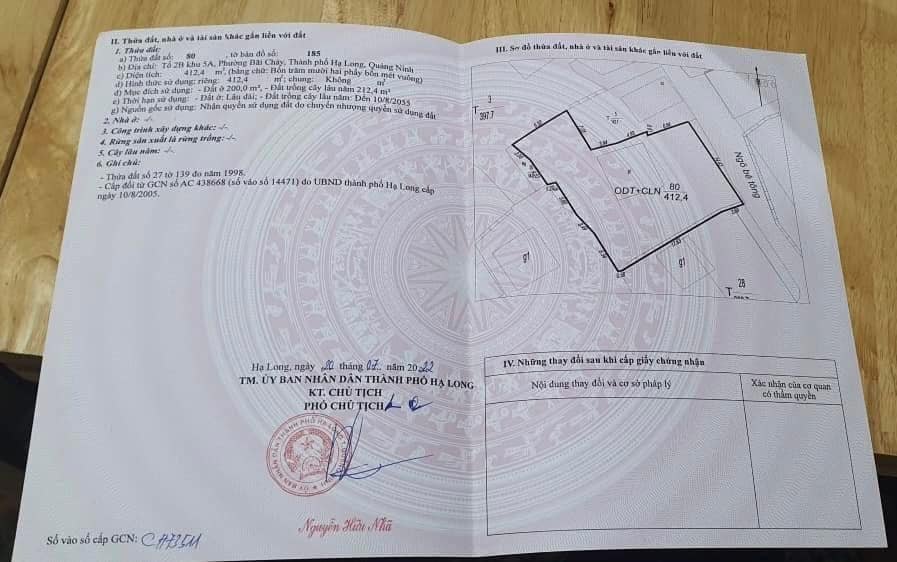 II. Thửa đất, nhà ở và tài sản khác gắn liền với đất
1. Thửa đất:
a) Thửa đất số: 80 , tờ bản đồ số: 185
b) Địa chỉ: Tổ 2B khu 5A, Phường Bãi Cháy, Thành phố Hạ Long, Quảng Ninh
c) Diện tích: 412,4 m², (bằng chữ: Bốn trăm mười hai phẩy bốn mét vuông)
d) Hình thức sử dụng: riêng: 412,4 m²; chung: Không m²
đ) Mục đích sử dụng: - Đất ở 200,0 m², - Đất trồng cây lâu năm 212,4 m²
e) Thời hạn sử dụng: - Đất ở: Lâu dài; - Đất trồng cây lâu năm: Đến 10/8/2055
g) Nguồn gốc sử dụng: Nhận quyền sử dụng đất do chuyển nhượng quyền sử dụng đất
2. Nhà ở: -/-
3. Công trình xây dựng khác: -/-
4. Rừng sản xuất là rừng trồng: -/-
5. Cây lâu năm: -/-
6. Ghi chú:
- Thửa đất số 27 tờ 139 đo năm 1998.
- Cấp đổi từ GCN số AC 438668 (số vào sổ 14471) do UBND thành phố Hạ Long cấp
ngày 10/8/2005.
Hạ Long, ngày 20 tháng 07 năm 2022
TM. ỦY BAN NHÂN DÂN THÀNH PHỐ HẠ LONG
KT. CHỦ TỊCH
PHÓ CHỦ TỊCH
Nguyễn Hữu Nhã
Số vào sổ cấp GCN: CH7351
III. Sơ đồ thửa đất, nhà ở và tài sản khác gắn liền với đất
T 3
397.7
ODT+CLN 80
412,4
Ngõ bê tông
g1
g1
T 28
IV. Những thay đổi sau khi cấp giấy chứng nhận
Nội dung thay đổi và cơ sở pháp lý
Xác nhận của cơ quan
có thẩm quyền